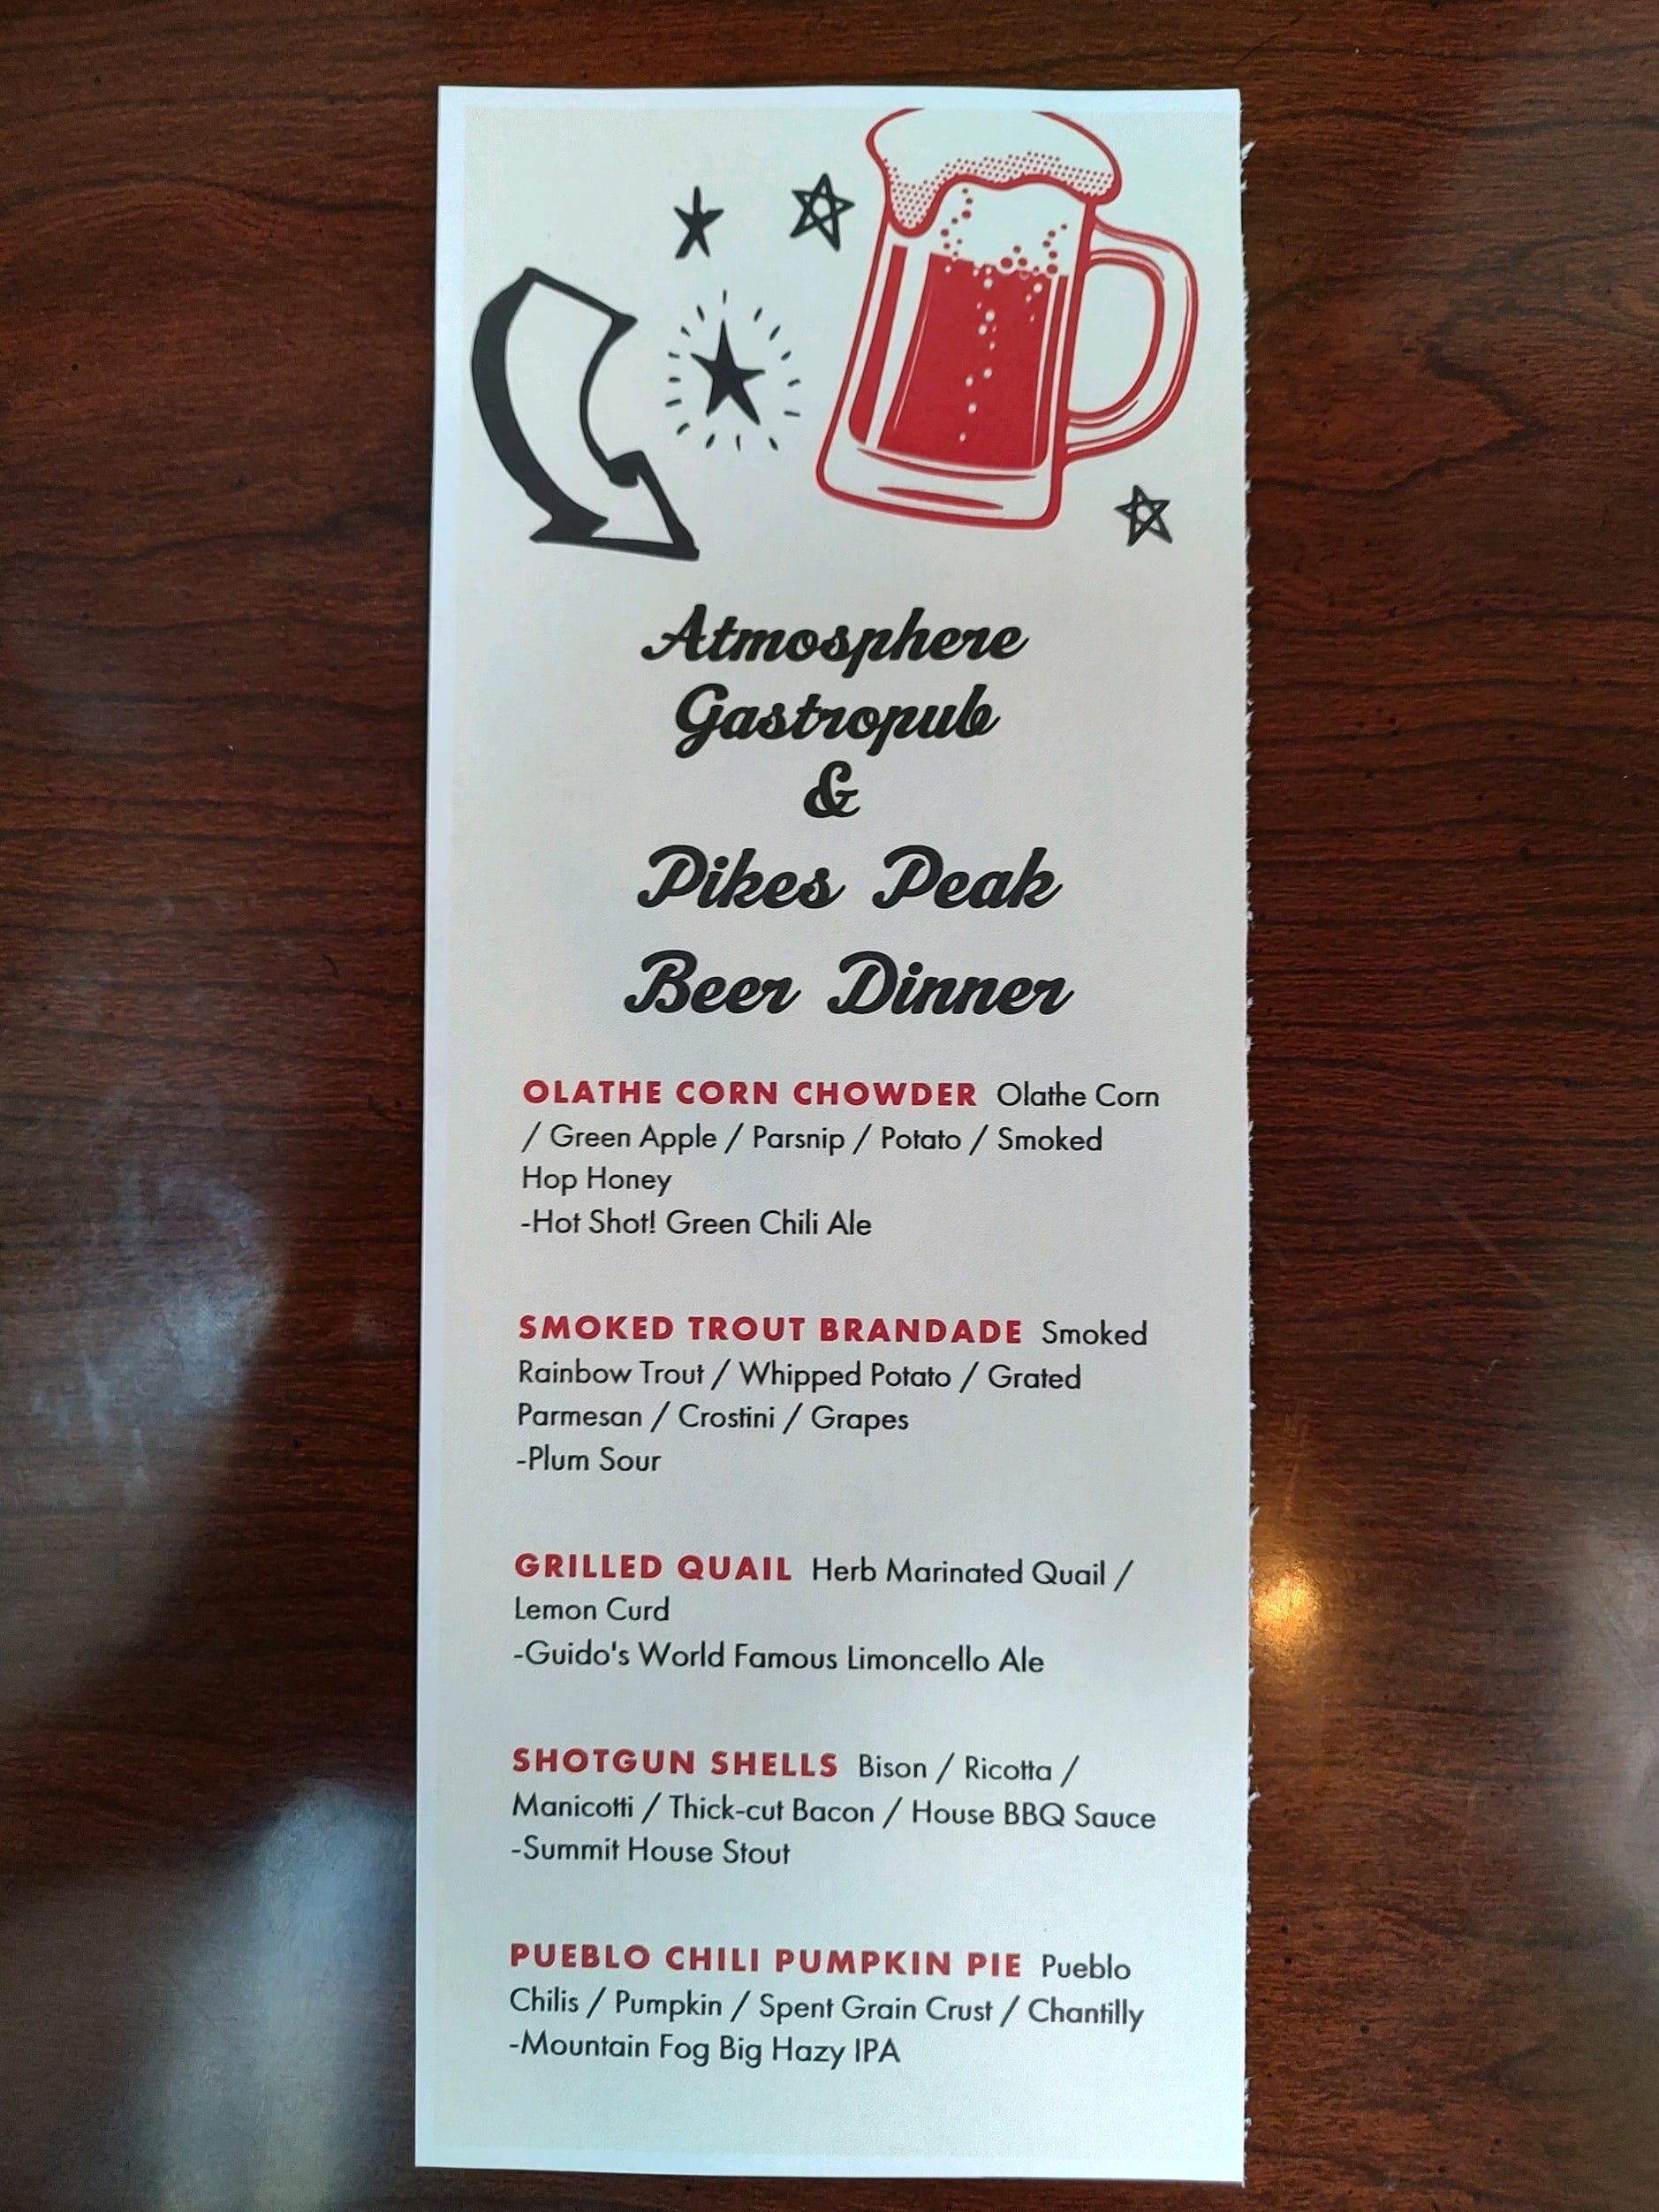 Atmosphere
Gastropub
&
Pikes Peak
Beer Dinner
OLATHE CORN CHOWDER Olathe Corn
/ Green Apple / Parsnip / Potato / Smoked
Hop Honey
-Hot Shot! Green Chili Ale
SMOKED TROUT BRANDADE Smoked
Rainbow Trout / Whipped Potato / Grated
Parmesan / Crostini / Grapes
-Plum Sour
GRILLED QUAIL Herb Marinated Quail /
Lemon Curd
-Guido's World Famous Limoncello Ale
SHOTGUN SHELLS Bison / Ricotta /
Manicotti / Thick-cut Bacon / House BBQ Sauce
-Summit House Stout
PUEBLO CHILI PUMPKIN PIE Pueblo
Chilis / Pumpkin / Spent Grain Crust / Chantilly
-Mountain Fog Big Hazy IPA